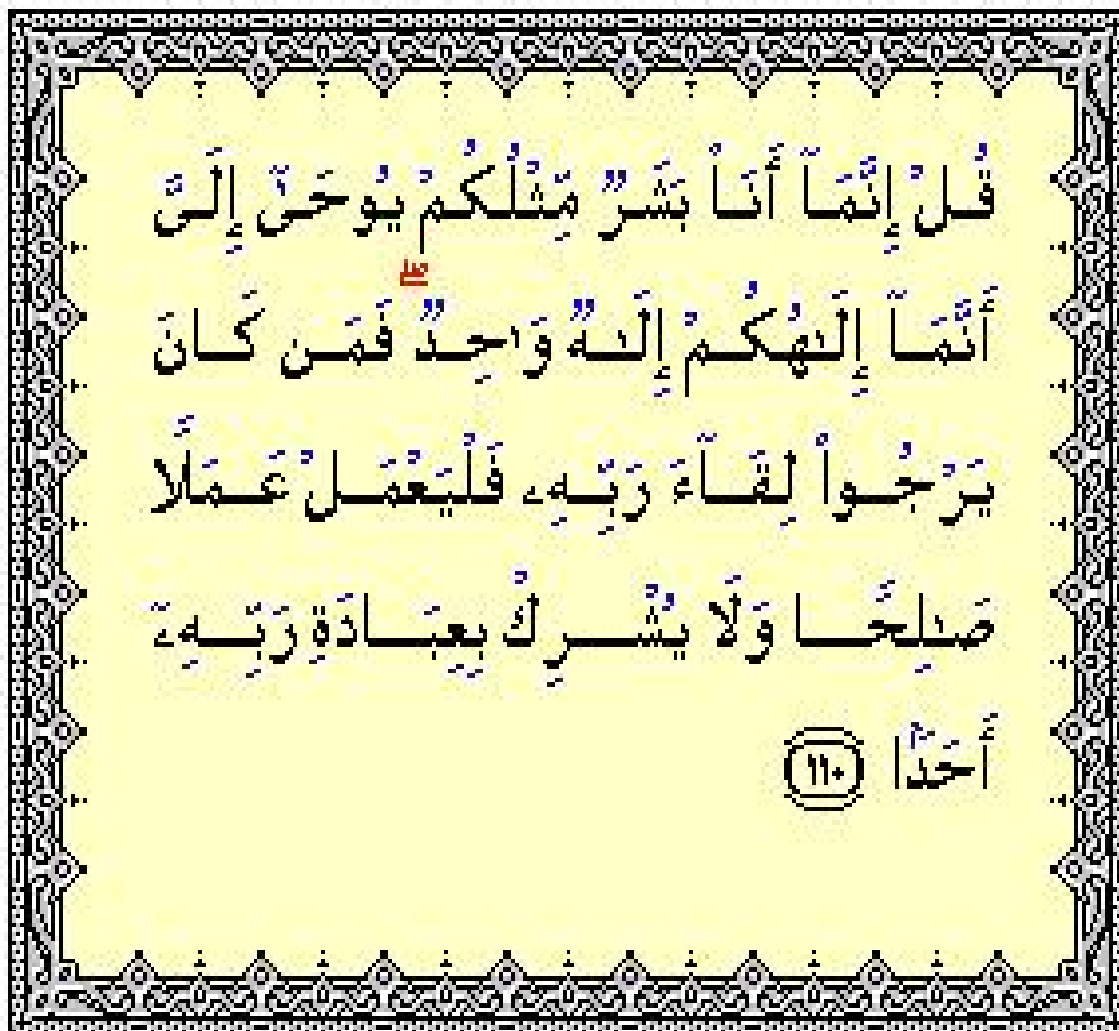 قُلْ إِنَّمَآ أَنَا۠ بَشَرٌ مِّثْلُكُمْ يُوحَىٰٓ إِلَىَّ
أَنَّمَآ إِلَـٰهُكُمْ إِلَـٰهٌ وَٰحِدٌ ۖ فَمَن كَانَ
يَرْجُوا۟ لِقَآءَ رَبِّهِۦ فَلْيَعْمَلْ عَمَلًا
صَـٰلِحًا وَلَا يُشْرِكْ بِعِبَادَةِ رَبِّهِۦٓ
أَحَدًۢا ١١٠